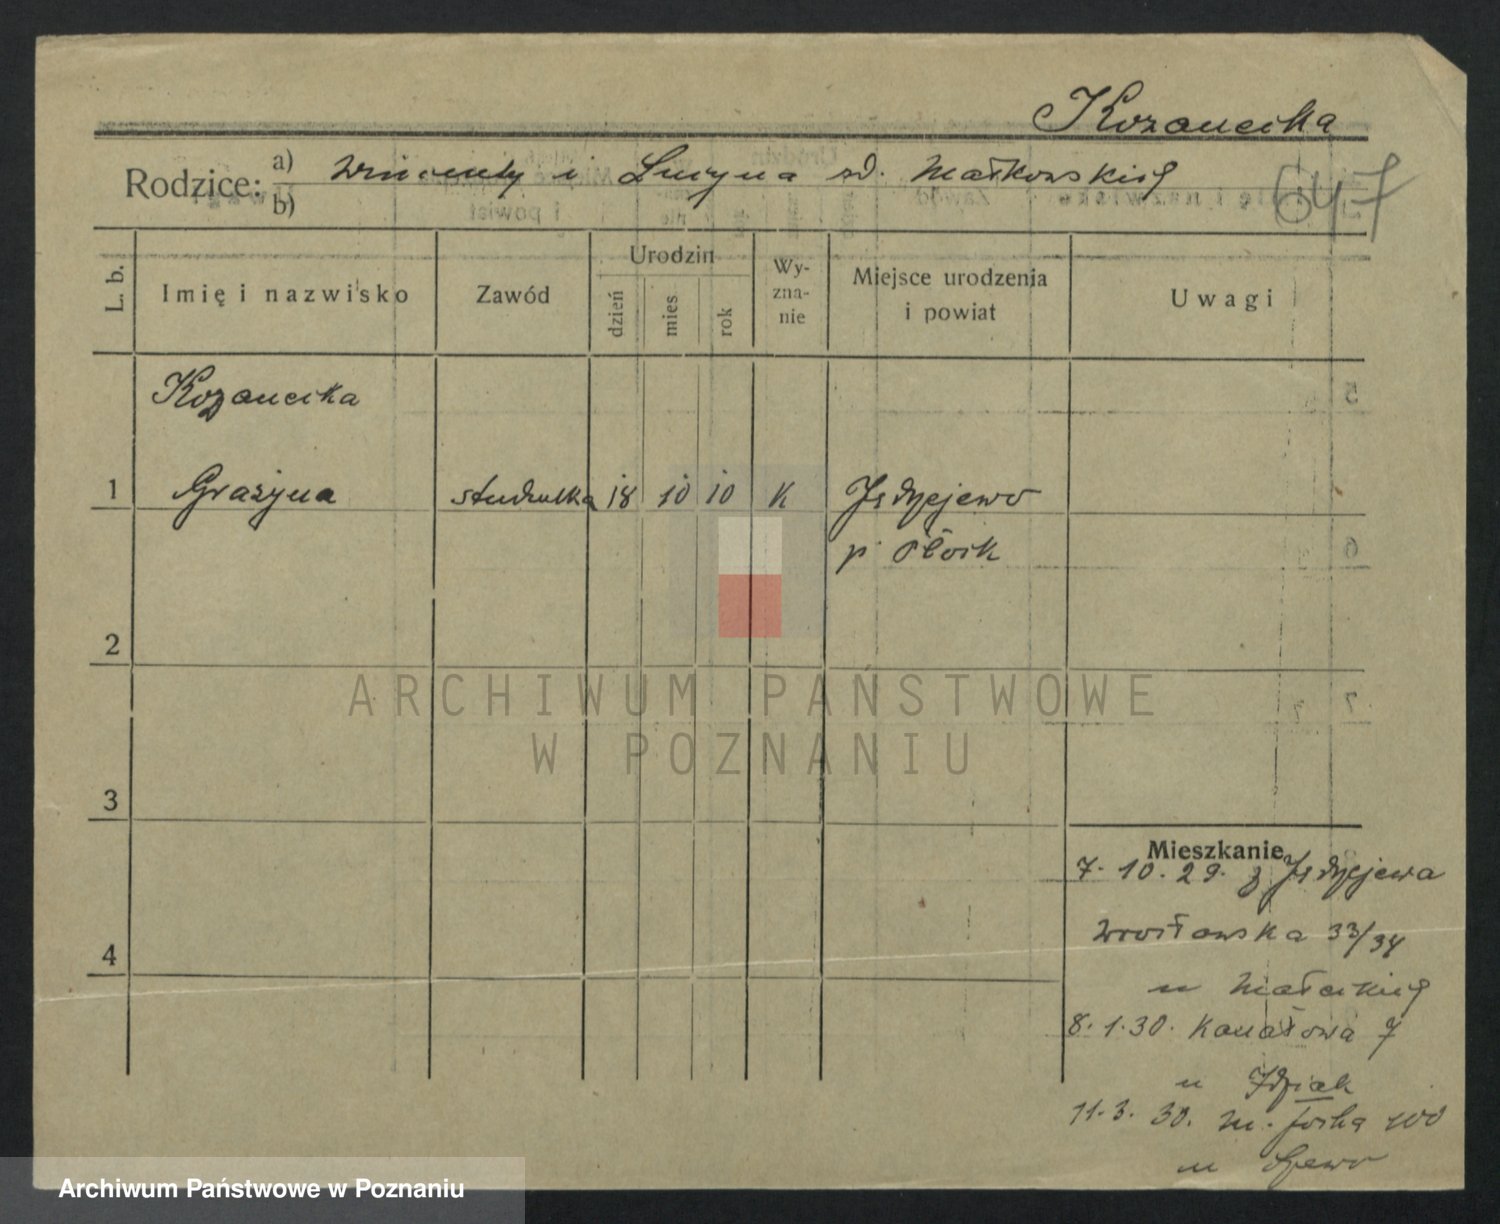 Kozanecka
Rodzice: a) Wincenty i Lucyna zd. Małkowskich
b)
647
L. b.
Imię i nazwisko
Zawód
Urodzin
dzień
mies
rok
Wy-
zna-
nie
Miejsce urodzenia
i powiat
Uwagi
Kozanecka
1 Grażyna studentka 18 10 10 K Jędrzejewo
p. Płock
2
3
4
Mieszkanie
7. 10. 29. z Jędrzejewa
Wrocławska 33/34
u Małeckich
8. 1. 30. Kanałowa 7
u
11. 3. 30. M. Focha
u
ARCHIWUM PAŃSTWOWE
W POZNANIU
Archiwum Państwowe w Poznaniu